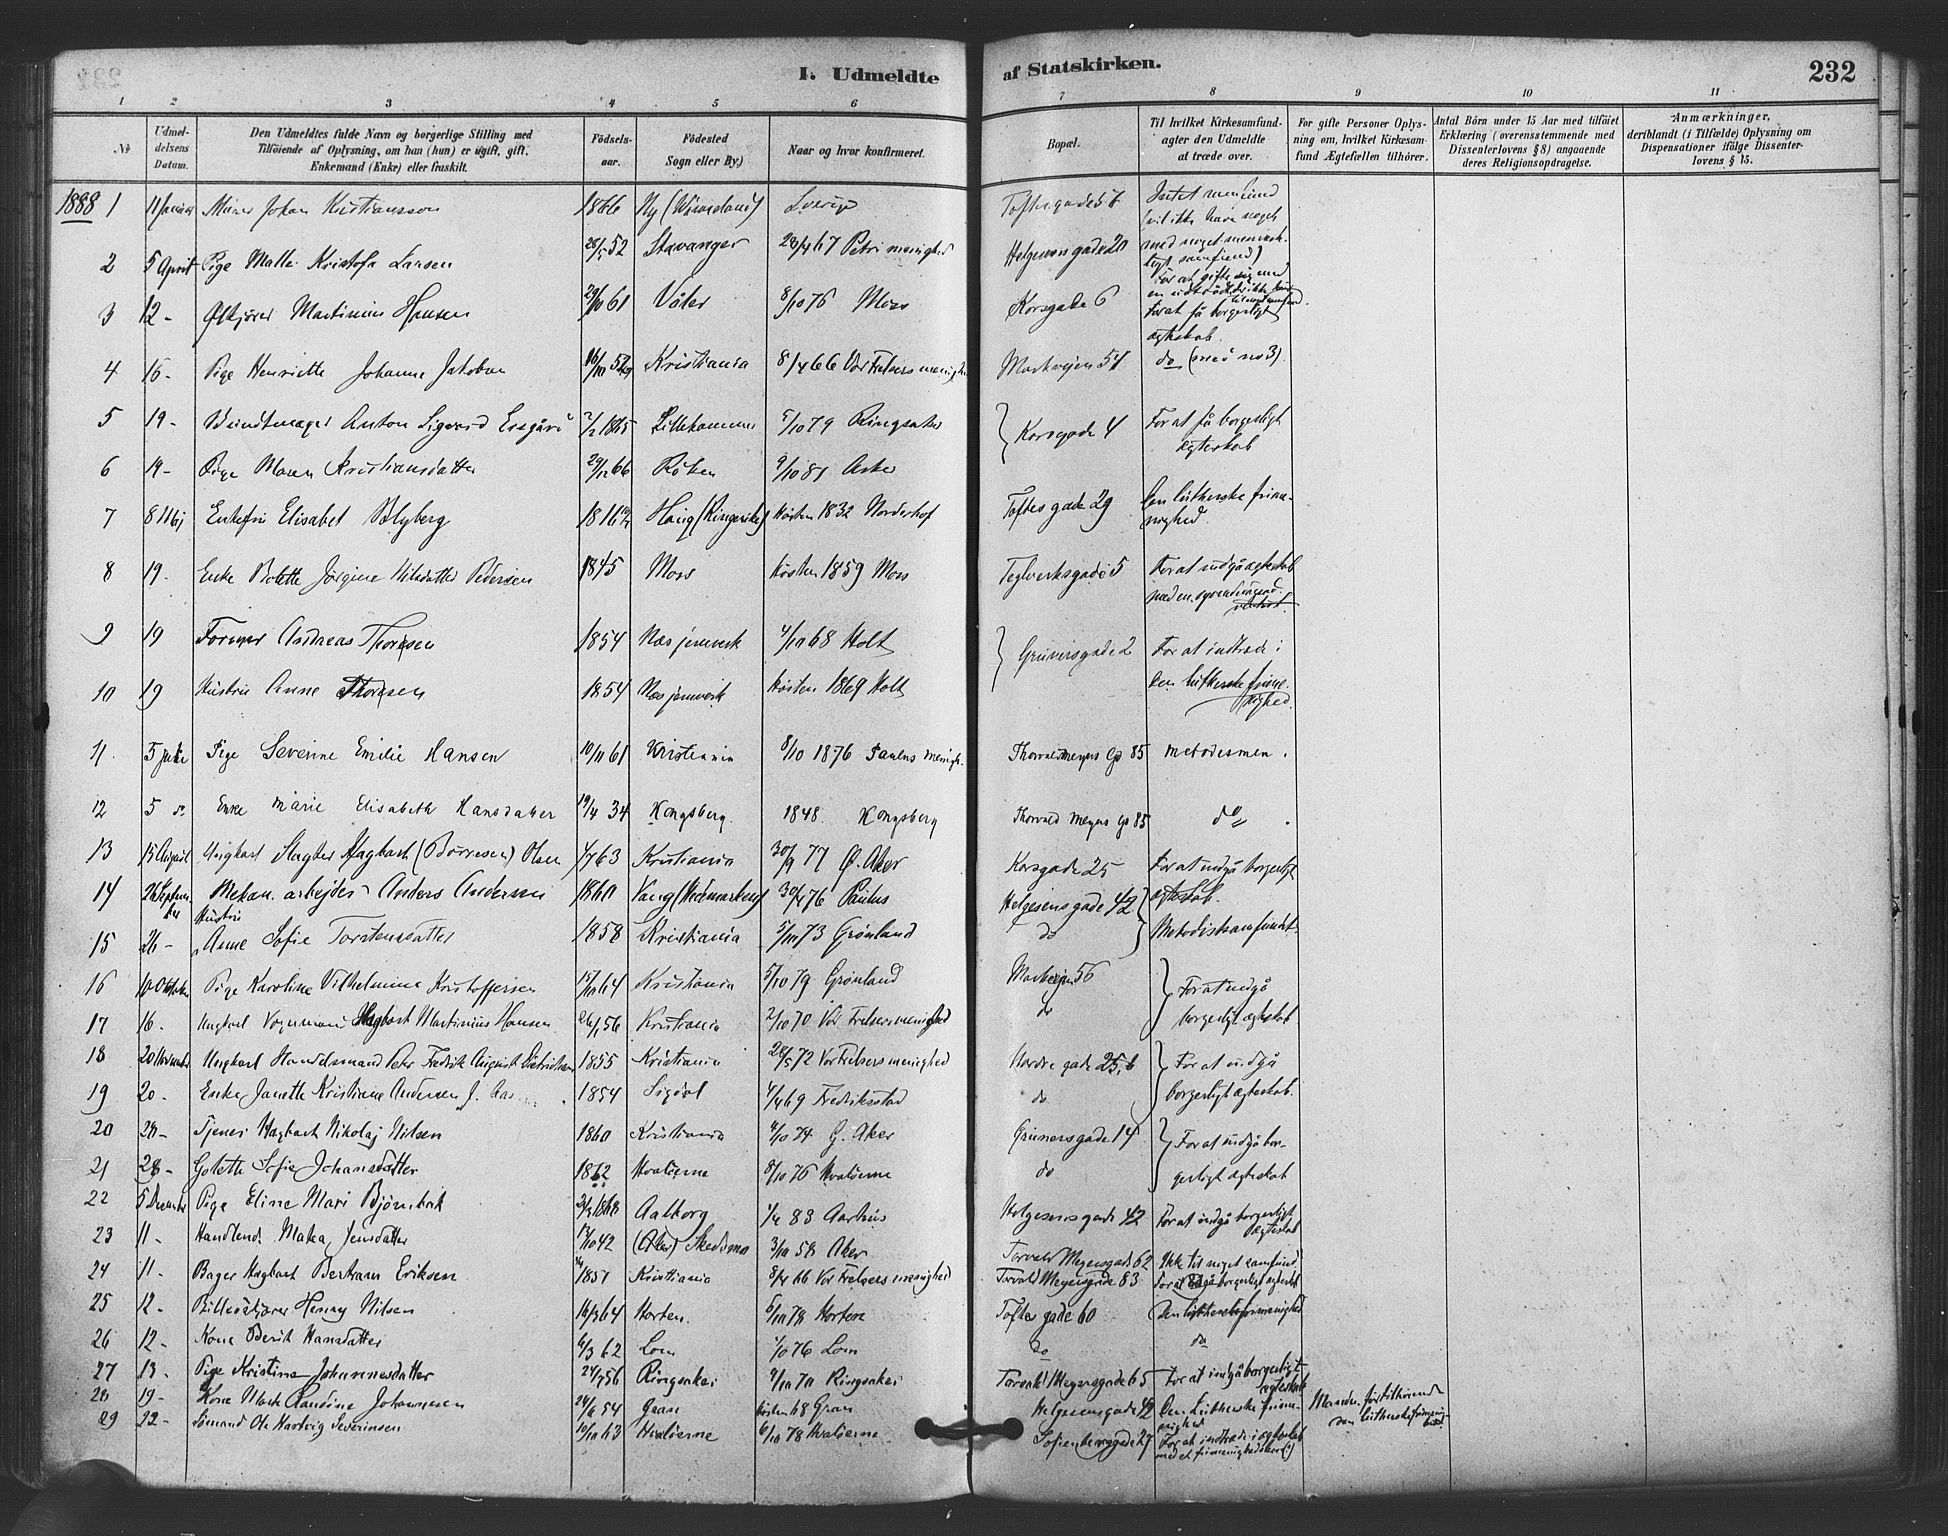 I. Udmeldte af Statskirken. 232
1 2 3 4 5 6 7 8 9 10 11
№ Udmeldelsens Datum. Den Udmeldtes fulde Navn og borgerlige Stilling med Tilføiende af Oplysning, om han (hun) er ugift, gift, Enkemand (Enke) eller fraskilt. Födselsaar. Födested Sogn eller By.) Naar og hvor konfirmeret. Bopæl. Til hvilket Kirkesamfund agter den Udmeldte at træde over. For gifte Personer Oplysning om, hvilket Kirkesamfund Ægtefællen tilhörer. Antal Börn under 15 Aar med tilföiet Erklæring (overensstemmende med Dissenterlovens § 8) angaaende deres Religionsopdragelse. Anmærkninger, deriblandt (i Tilfælde) Oplysning om Dispensationer ifölge Dissenterlovens § 15.
1888 1 11 Januar Murer Johan Kristiansson 1866 Ny (Wermeland) Sverige Toftesgade 56 Intet samfund (vil ikke have noget med noget menneskeligt samfund)
2 5 April Pige Malli Kristofa Larsen 28/5 52 Stavanger 28/4 67 Petri menighed Helgesens gade 20 For at gifte sig med
3 12 - Ølkjører Martinius Hansen 29/10 61 Våler 8/10 76 Moss Korsgade 6 For at få borgerligt ægteskab.
4 16 - Pige Henriette Johanne Jakobsen Kristiania 8/4 66 Vor Frelsers menighed Markvejen 54 do (med no 3).
5 19 - Buntmager Anton Sigvard 2/2 1865 Lillehammer 5/10 79 Ringsaker Korsgade 4 For at få borgerligt ægteskab
6 19 - Pige Maren Kristiansdatter 29/12 66 Röken 9/10 81 Asker
7 8 Maj Enkefru Elisabet Blyberg 1816 Houg (Ringerike) Hösten 1832 Norderhof Toftes gade 29 Den lutherske frimenighed.
8 19. Enke Bolette Jörgine Nilsdatter Pedersen 1845 Moss Hösten 1859 Moss Teglverksgade 5 For at indgå ægteskab med en
9 19 Former Andreas Thoresen 1854 Næs jernverk 4/10 68 Holt Grunersgade 2 For at indtræde i
10 19 Hustru Anne Thoresen 1854 Næs jernverk Hösten 1869 Holt den lutherske frimenighed.
11. 5 Juli Pige Severine Emilie Hansen 10/11 61 Kristiania 8/10 1876 Paulus menigh. Thorvald Meyers Gd 85 metodesmen.
12 5 do Enke Marie Elisabeth Hansdatter 19/4 34 Kongsberg. 1848 Kongsberg Thorvald Meyers Gd 85 do
13 15 August Ungkarl Slagter Hagbart (Børresen) Olsen 4/7 63 Kristiania 30/9 77 Ø. Aker Korsgade 25 For at indgå borgerligt ægteskab.
14 26 September Mekan. arbejder Anders Andersen 1860 Vang (Hedemarken) 30/4 76 Paulus Helgesens gade 42
15 26 - Hustru Anne Sofie Torstensdatter 1858 Kristiania 5/10 73 Grönland do Metodistsamfundet.
16 10 Oktober Pige Karoline Vilhelmine Kristoffersen 15/10 64 Kristiania 5/10 79 Grönland Markvejen 56 For at indgå
17 16 - Ungkarl Vognmand Hagbart Martinius Hansen 26/1 56 Kristiania 2/10 70 Vor Frelsers menighed do borgerligt ægteskab
18 20 November Ungkarl Handelsmand Peter Fredrik August Dietrichsen 1855 Kristiania 28/5 72 Vor Frelsers menighed Nordre gade 25, b For at indgå
19 20 - Enke Janette Kristiane Andersen f. 1854 Sigdal 4/4 69 Fredriksstad do borgerligt ægteskab.
20 28 - Tjener Hagbart Nikolaj Nilsen 1860 Kristiania 4/10 74 G. Aker Grunersgade 14 For at indgå bor-
21 28 - Golette Sofie Johannsdatter 1862 Hvalöerne 8/10 76 Hvalöerne do gerligt ægteskab
22 5 December Pige Eline Mari Björnbak 1868 Aalborg 1/4 83 Aarhus Helgesens gade 42 For at indgå borgerligt ægteskab
23 11 - Handlend. Matea Jensdatter 17/10 42 (Aker) Skedsmo 3/10 58 Aker Torvald Meyersgade 62 Ikke til noget samfund.
24 11 - Bager Hagbart Bertram Eriksen 1851 Kristiania 8/4 66 Vor Frelsers menighed Torvald Meyersgade 83 For at indgå borgerligt ægteskab
25 12 - Henry Nilsen 16/3 64 Horten. 6/10 78 Horten Toftes gade 60 Den lutherske frimenighed
26 12 - Kone Berit Hansdatter 6/3 62 Lom 1/10 76 Lom do do
27 13. Pige Kristine Johannesdatter 24/7 56 Ringsaker 9/10 70 Ringsaker Torvald Meyersgade 65 For at indgå borgerligt ægteskab
28 19 - Kone Randine Johannesen 54 Gran Hösten 68 Gran Helgesensgade 42 Den Lutherske frimenighed Manden tilhörende den lutherske frimenighed
29 22 - Sömand Ole Hartvig Severinsen 10/10 63 Hvalöerne 6/10 78 Hvalöerne Sofienberggade 27 For at indtræde i ægteskab med et